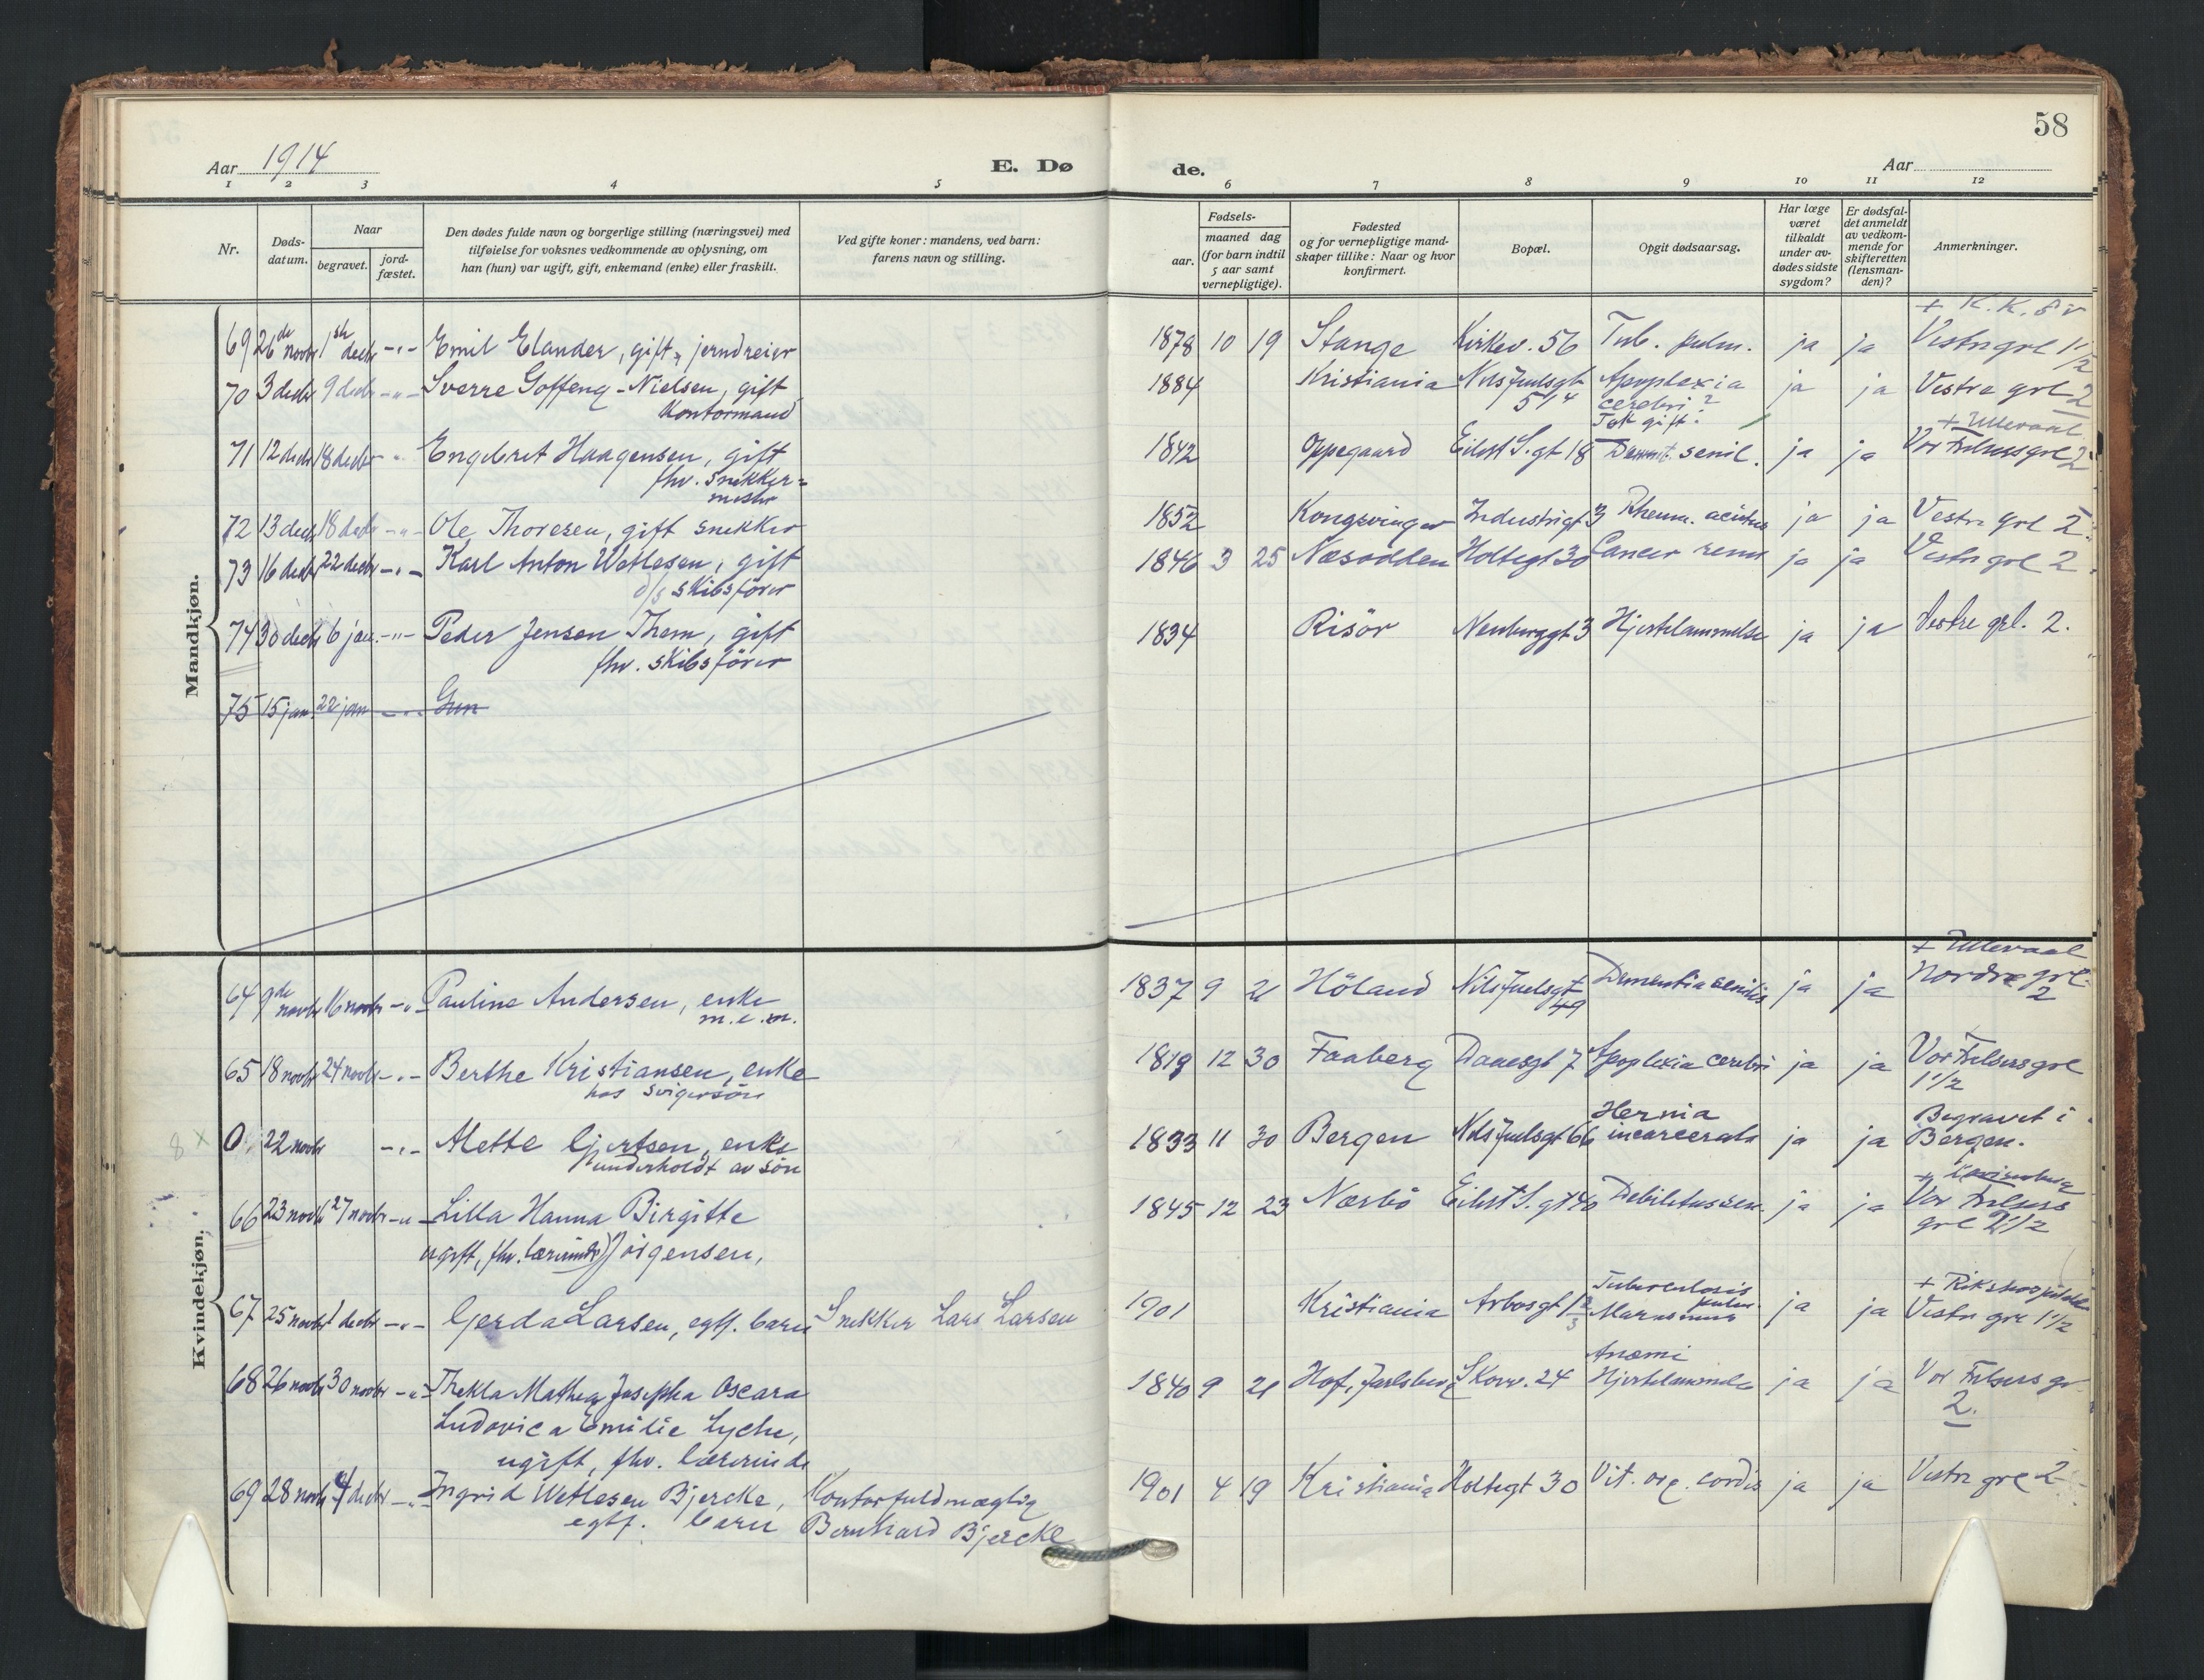 58
Aar 1914
E. Dø
de.
Aar
1 2 3 4 5 6 7 8 9 10 11 12
Nr.
Døds-
datum.
Naar
begravet.
jord-
fæstet.
Den dødes fulde navn og borgerlige stilling (næringsvei) med
tilføielse for voksnes vedkommende av oplysning, om
han (hun) var ugift, gift, enkemand (enke) eller fraskilt.
Ved gifte koner: mandens, ved barn:
farens navn og stilling.
Fødsels-
aar.
maaned dag
(for barn indtil
5 aar samt
vernepligtige).
Fødested
og for vernepligtige mand-
skaper tillike: Naar og hvor
konfirmert.
Bopæl.
Opgit dødsaarsag.
Har læge
været
tilkaldt
under av-
dødes sidste
sygdom?
Er dødsfal-
det anmeldt
av vedkom-
mende for
skifteretten
(lensman-
den)?
Anmerkninger.
Mandkjøn.
+ K. K.
69 26de novbr 1ste decbr -"- Emil Elander, gift, jerndreier 1878 10 19 Stange Kirkev. 56 Tub. pulm. ja ja Vestre grl 1 1/2
70 3 decbr 9 decbr -"- Sverre Goffeng-Nielsen, gift 1884 Kristiania Nils Juelsgt Apoplexia ja ja Vestre grl 2
Kontormand 51 4 cerebri?
Tok gift. + Ullevaal
71 12 decbr 18 decbr " Engebret Haagensen, gift 1842 Oppegaard Eilert S. gt 18 Dement. senil. ja ja Vor Frelsers grl 2
fhv. snekker=
mester
72 13 decbr 18 decbr -"- Ole Thoresen, gift snekker 1852 Kongsvinger Industrigt 3 Rheum. ja ja Vestre grl 2.
73 16 decbr 22 decbr -"- Karl Anton Wetlesen, gift 1846 3 25 Næsodden Holtegt 30 Cancer renis ja ja Vestre grl 2.
d/s skibsfører
74 30 decbr 6 jan. -"- Peder Jensen Them, gift 1834 Risör Neuberggt 3 Hjertelammelse ja ja Vestre grl. 2.
fhv. skibsfører
75 15 jan. 22 jan -"- Gun
Kvindekjøn.
+ Ullevaal
64 9de novbr 16 novbr -"- Pauline Andersen, enke 1837 9 21 Höland Nils Juelsgt Dementia senilis ja ja Nordre grl.
m.e.m. 49 2
65 18 novbr 24 novbr -"- Berthe Kristiansen, enke 1819 12 30 Faaberg Daaesgt 7 Apoplexia cerebri ja ja Vor Frelsers grl
hos svigersön 1 1/2
Hernia Begravet i
8 x 0 22 novbr -"- Mette Gjertsen, enke 1833 11 30 Bergen Nils Juelsgt 66 incarcerata ja ja Bergen.
underholdt av sön
66 23 novbr 27 novbr -"- Lilla Hanna Birgitte 1845 12 23 Nærbö Eilert S. gt 40 Debilitas sen. ja ja Vor Frelsers
ugift, fhv. lærerinde) Jörgensen, grl 2 1/2
Tuberculosis + Rikshospitalet
67 25 novbr 1 decbr -"- Gerda Larsen, egtf. barn Snekker Lars Larsen 1901 Kristiania Arbosgt pulm. Marasmus ja ja Vestre grl 1 1/2
Anæmi
68 26 novbr 30 novbr -"- Thekla Mathea Josepha Oscara 1840 9 21 Hof, Jarlsberg Skovv. 24 Hjertelammelse ja ja Vor Frelsers gr
Ludovica Emilie Lyche, 2.
ugift, fhv. lærerinde
69 28 novbr 4 decbr -"- Ingrid Wetlesen Bjercke, Kontorfuldmægtig 1901 4 19 Kristiania Holtegt 30 Vit. org. cordis ja ja Vestre grl 2
egtf. barn Bernhard Bjercke